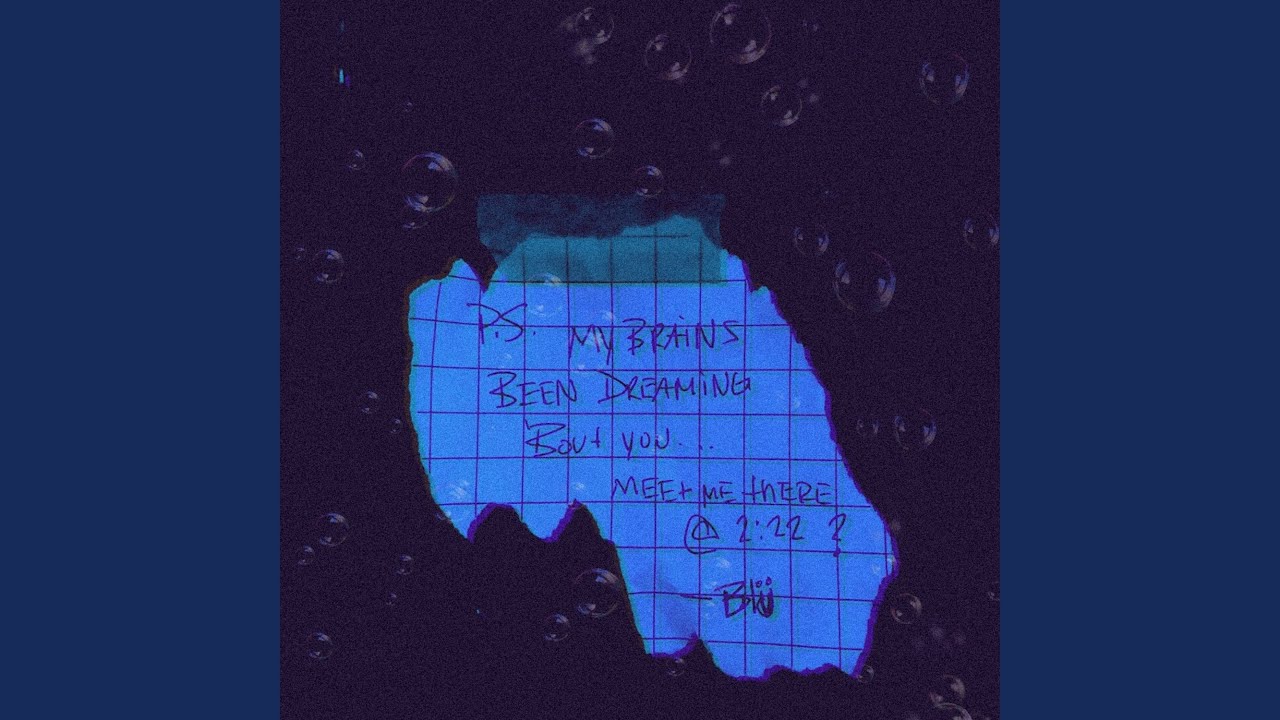 P.S. MY BRAiNS
BEEN DREAMiNG
'BOUt YOU...
MEEt ME tHERE
@ 2:22 ?
— Blü